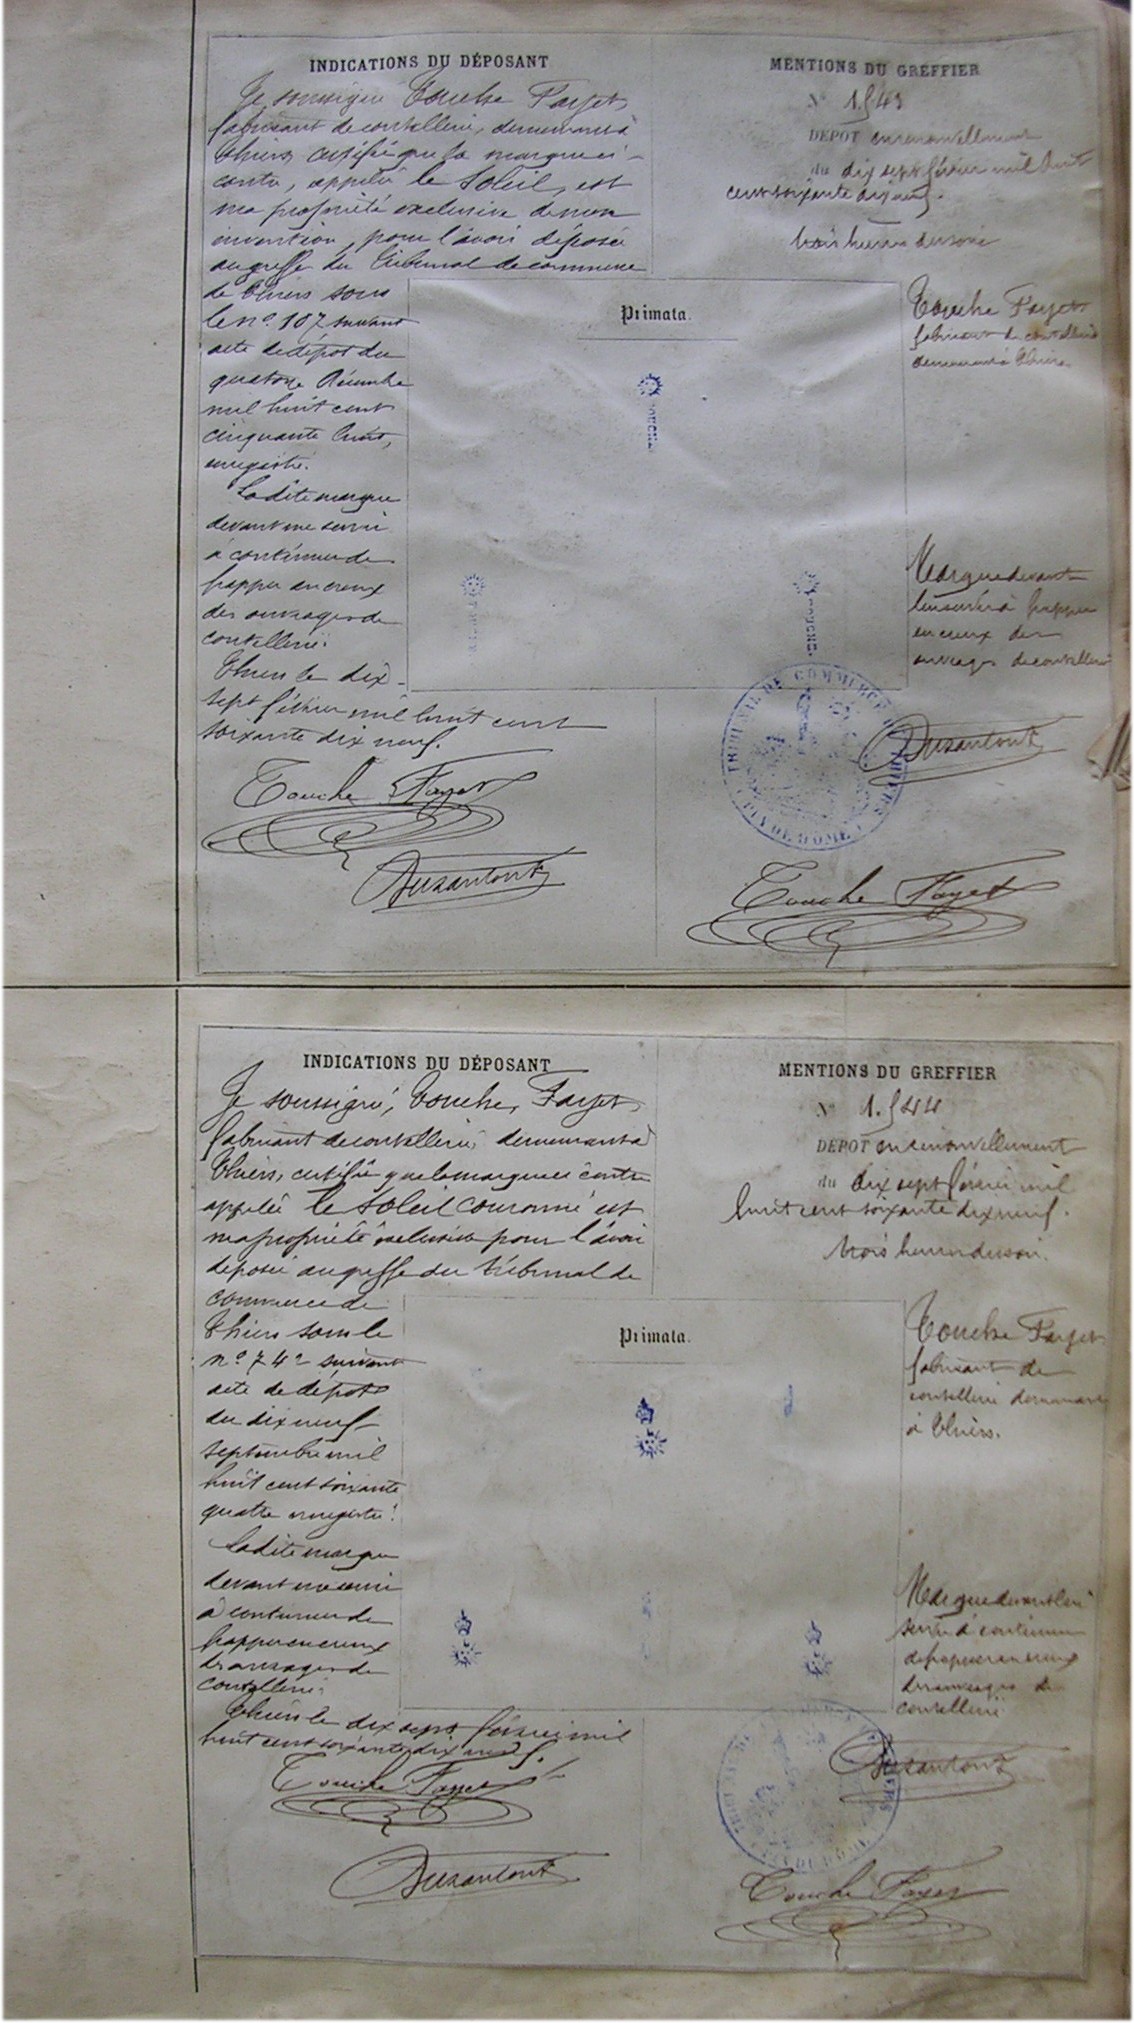 INDICATIONS DU DÉPOSANT
Je soussigné Touche Fayet,
fabricant de coutellerie, demeurant à
Thiers certifie que la marque ci-
contre, appelée le Soleil, est
ma propriété exclusive de mon
invention, pour l'avoir déposée
au greffe du tribunal de commerce
de Thiers sous
le no. 107 suivant
acte de dépôt du
quatorze Décembre
mil huit cent
cinquante huit,
enregistré.
La dite marque
devant me servir
à continuer de
frapper en creux
des ouvrages de
coutellerie.
Thiers le dix-
sept février mil huit cent
soixante dix neuf.
Touche Fayet
Dusantont
MENTIONS DU GREFFIER
No 1.543
DÉPOT en renouvellement
du dix sept février mil huit
cent soixante dix neuf.
trois heures du soir
Primata.
TOUCHE
TOUCHE
TOUCHE
Touche Fayet
fabricant de coutellerie
demeurant à Thiers
Marque devant
lui servir à frapper
en creux des
ouvrages de coutellerie
TRIBUNAL DE COMMERCE THIERS
PUY DE DOME
Dusantont
Touche Fayet
INDICATIONS DU DÉPOSANT
Je soussigné, Touche, Fayet,
fabricant de coutellerie, demeurant à
Thiers, certifie que la marque ci contre
appelée le Soleil couronné est
ma propriété exclusive pour l'avoir
déposée au greffe du tribunal de
commerce de
Thiers sous le
no. 742 suivant
acte de dépôt
du dix neuf
septembre mil
huit cent soixante
quatre enregistré.
La dite marque
devant me servir
à continuer de
frapper en creux
des ouvrages de
coutellerie.
Thiers le dix sept février mil
huit cent soixante dix neuf.
Touche Fayet
Dusantont
MENTIONS DU GREFFIER
No 1.544
DEPOT en renouvellement
du dix sept février mil
huit cent soixante dix neuf.
trois heures du soir.
Primata.
Touche Fayet
fabricant de
coutellerie demeurant
à Thiers.
Marque devant lui
servir à continuer
de frapper en creux
des ouvrages de
coutellerie
Dusantont
Touche Fayet